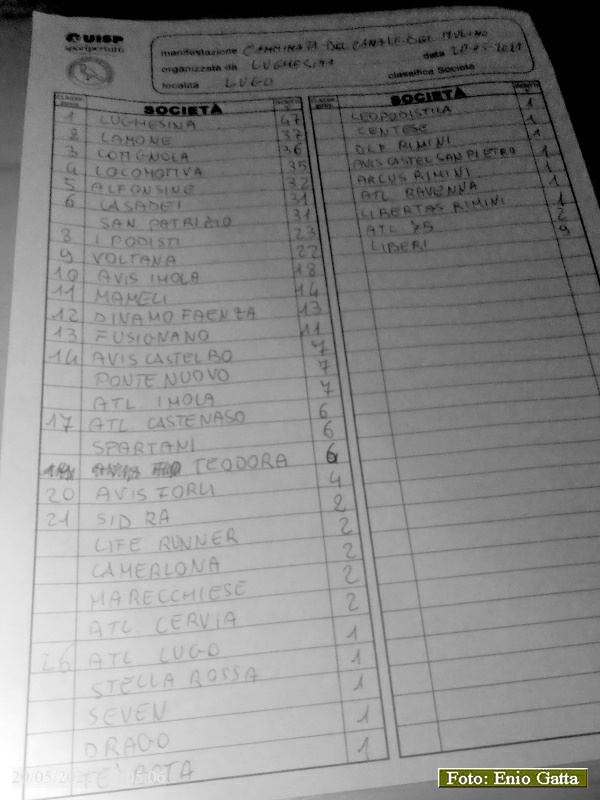 UISP
sportpertutti
manifestazione CAMMINATA DEL CANALE DEL MULINO
organizzata da LUGHESINA data
località LUGO classifica Società
SOCIETÀ
1 LUGHESINA 47
2 LAMONE 37
3 COTIGNOLA 36
4 LOCOMOTIVA 35
5 ALFONSINE 32
6 CASADEI 31
SAN PATRIZIO 31
8 I PODISTI 23
9 VOLTANA 22
10 AVIS IMOLA 18
11 MAMELI 14
12 DINAMO FAENZA 13
13 FUSIGNANO 11
14 AVIS CASTEL BO 7
PONTE NUOVO 7
ATL IMOLA 7
17 ATL CASTENASO 6
SPARTANI 6
TEODORA 6
20 AVIS FORLI 4
21 SIDRA 2
LIFE RUNNER 2
CAMERLONA 2
MARECCHIESE 2
ATL CERVIA 2
26 ATL LUGO 1
STELLA ROSSA 1
SEVEN 1
DRAGO 1
SOCIETÀ
LEOPODISTICA 1
CENTESE 1
DLF RIMINI 1
AVIS CASTEL SAN PIETRO 1
ARCUS RIMINI 1
ATL RAVENNA 1
LIBERTAS RIMINI 1
ATL 75 2
LIBERI 9
Foto: Enio Gatta